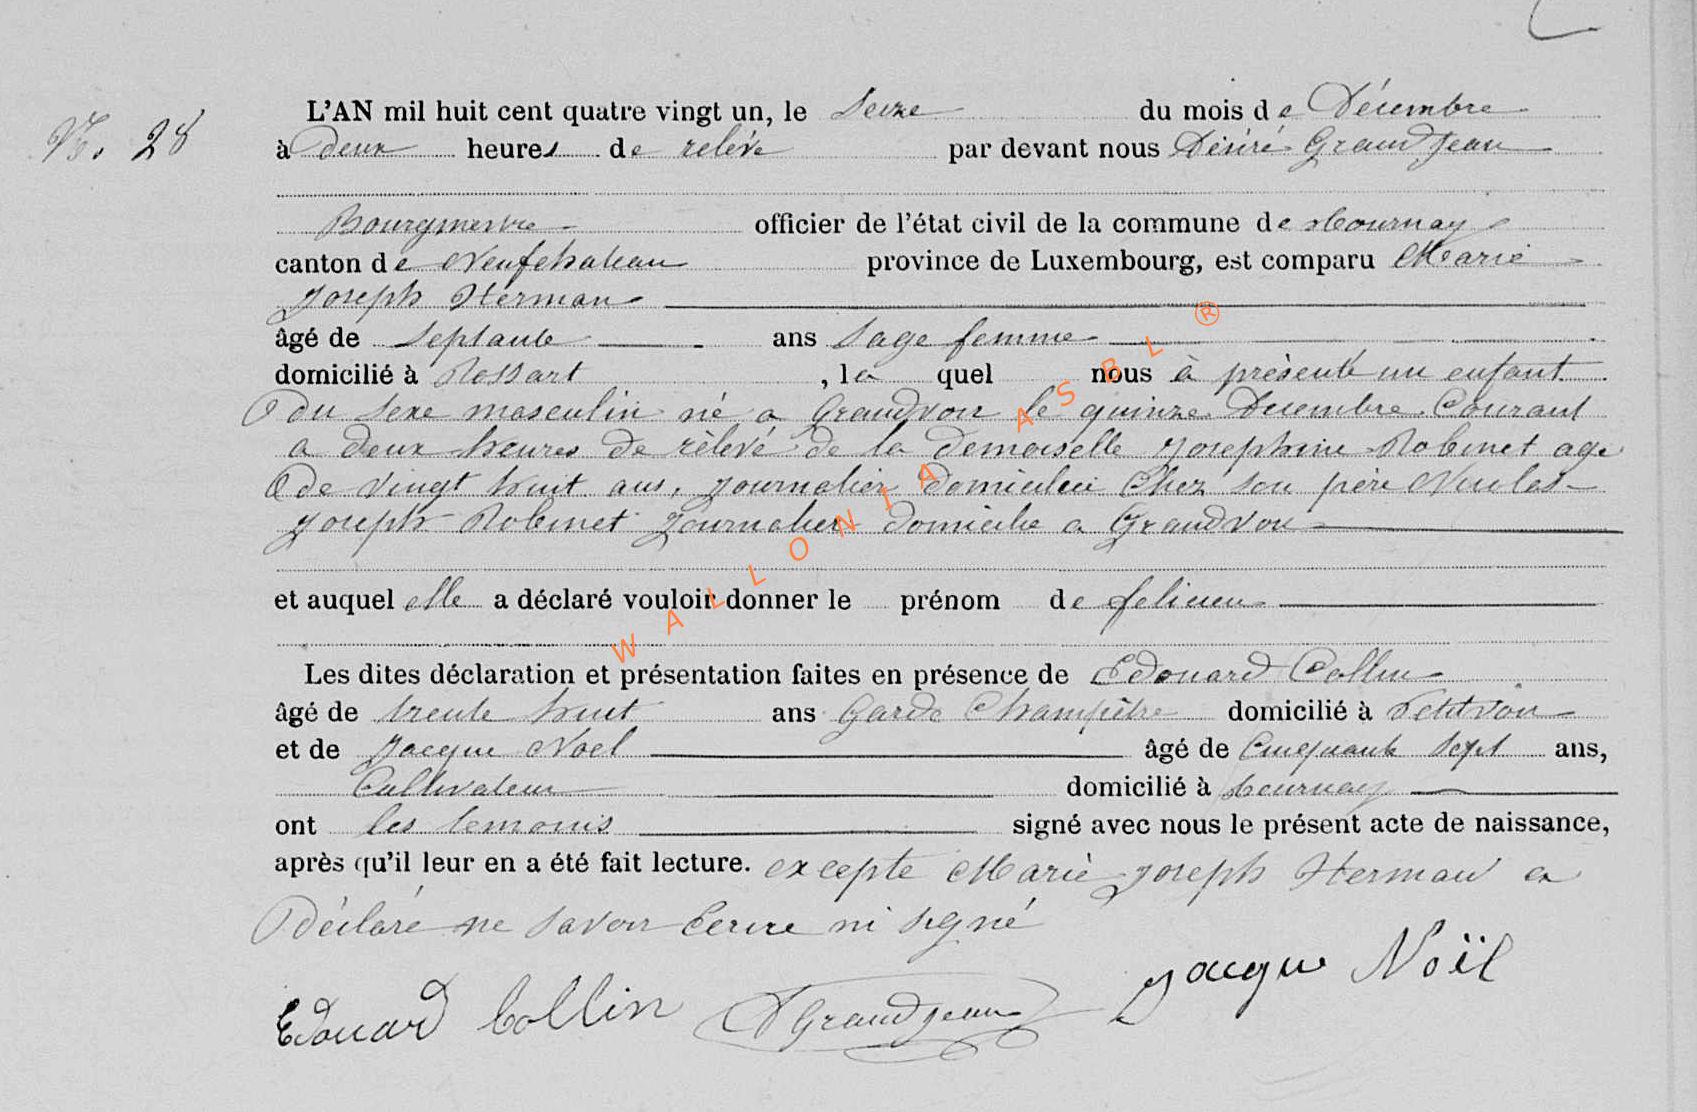 N°. 28
L'AN mil huit cent quatre vingt un, le Seize du mois de Décembre
à Deux heures de relévé par devant nous Désiré Grandjean
Bourgmestre officier de l'état civil de la commune de tournay
canton de Neufchateau province de Luxembourg, est comparu Marie
Joseph Herman
âgé de Septante ans Sage femme
domicilié à Rossart , la quel nous à présenté un enfant
du sexe masculin né a Grandvoir le quinze Decembre Courant
a deux heures de rélevé de la demoiselle Josephine Robinet age
de vingt huit ans, Journalier domicilieé Chez son père Nicolas
Joseph Robinet Journalier domicilié a Grandvoir
et auquel elle a déclaré vouloir donner le prénom de felicien
Les dites déclaration et présentation faites en présence de Edouard Collin
âgé de trente huit ans Garde Champêtre domicilié à Petitvoir
et de Jacque Noel âgé de Cinquante Sept ans,
Cultivateur domicilié à tournay
ont les temoins signé avec nous le présent acte de naissance,
après qu'il leur en a été fait lecture. excepté Marie Joseph Herman a
déclaré ne savoir Ecrire ni signé
Edouard Collin D Grandjean Jacque Noël
WALLONIA ASBL ®